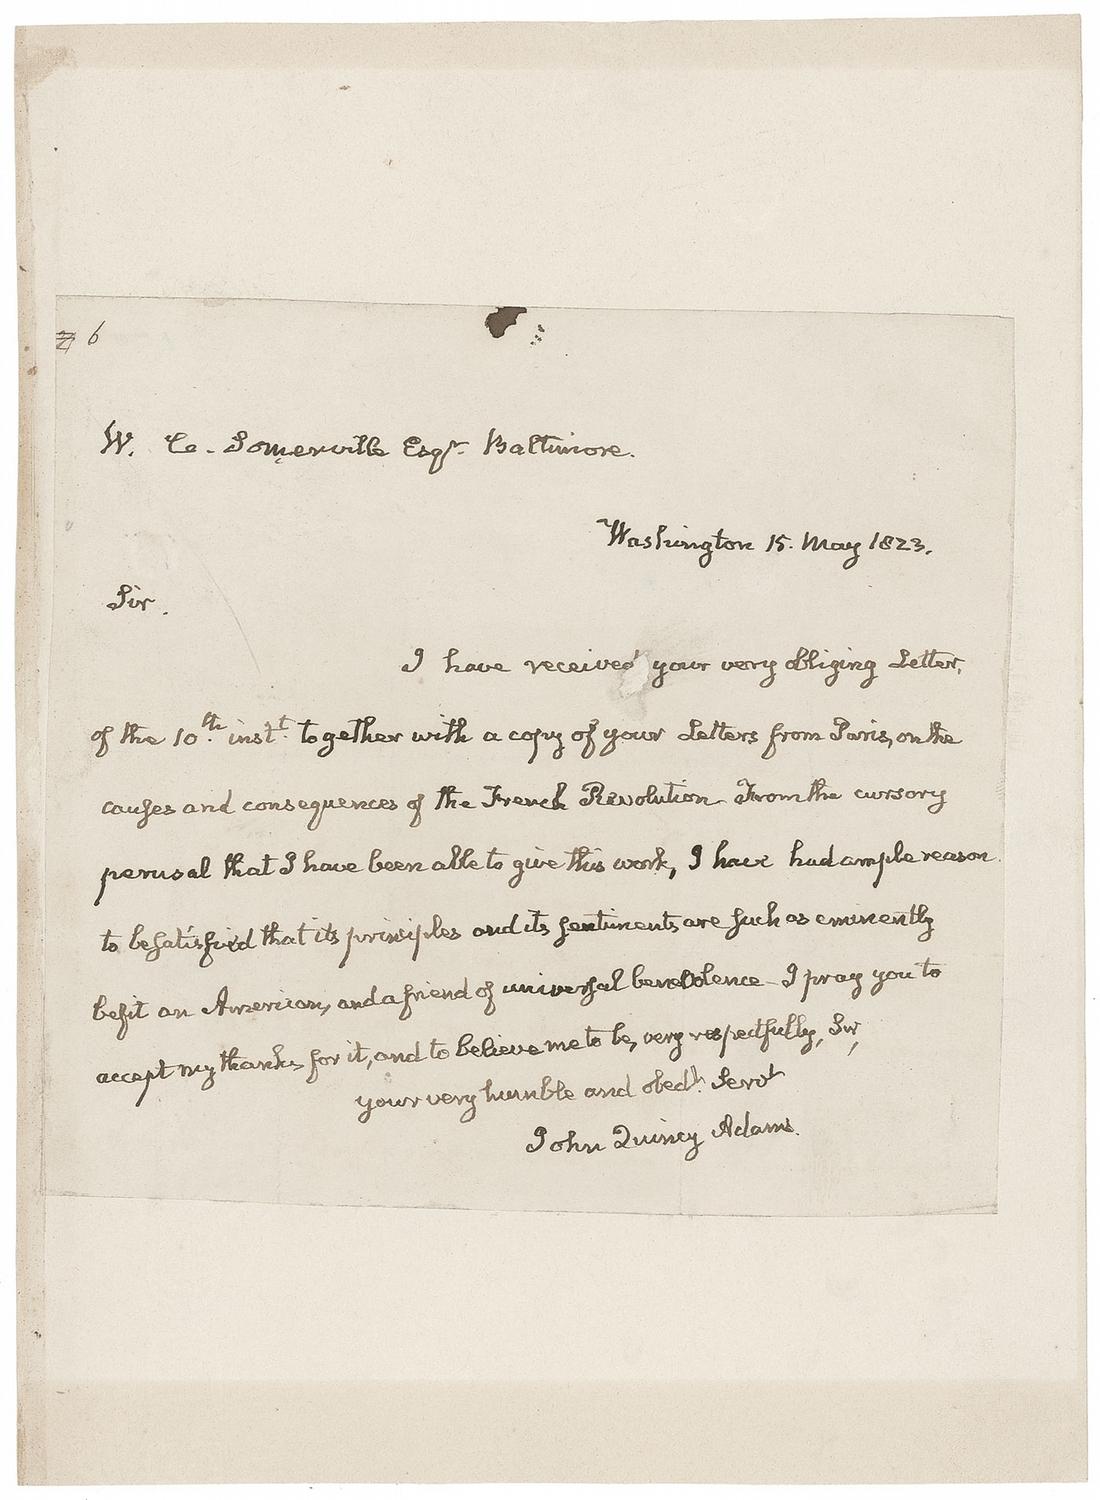 6
W. C. Somerville Esqr. Baltimore.
Washington 15. May 1823.
Sir.
I have received your very obliging Letter,
of the 10th. instt. together with a copy of your Letters from Paris, on the
causes and consequences of the French Revolution From the cursory
perusal that I have been able to give this work, I have had ample reason
to be satisfied that its principles and its sentiments are such as eminently
befit an American, and a friend of universal benevolence - I pray you to
accept my thanks for it, and to believe me to be, very respectfully, Sir,
your very humble and obedt. Servt
John Quincy Adams.